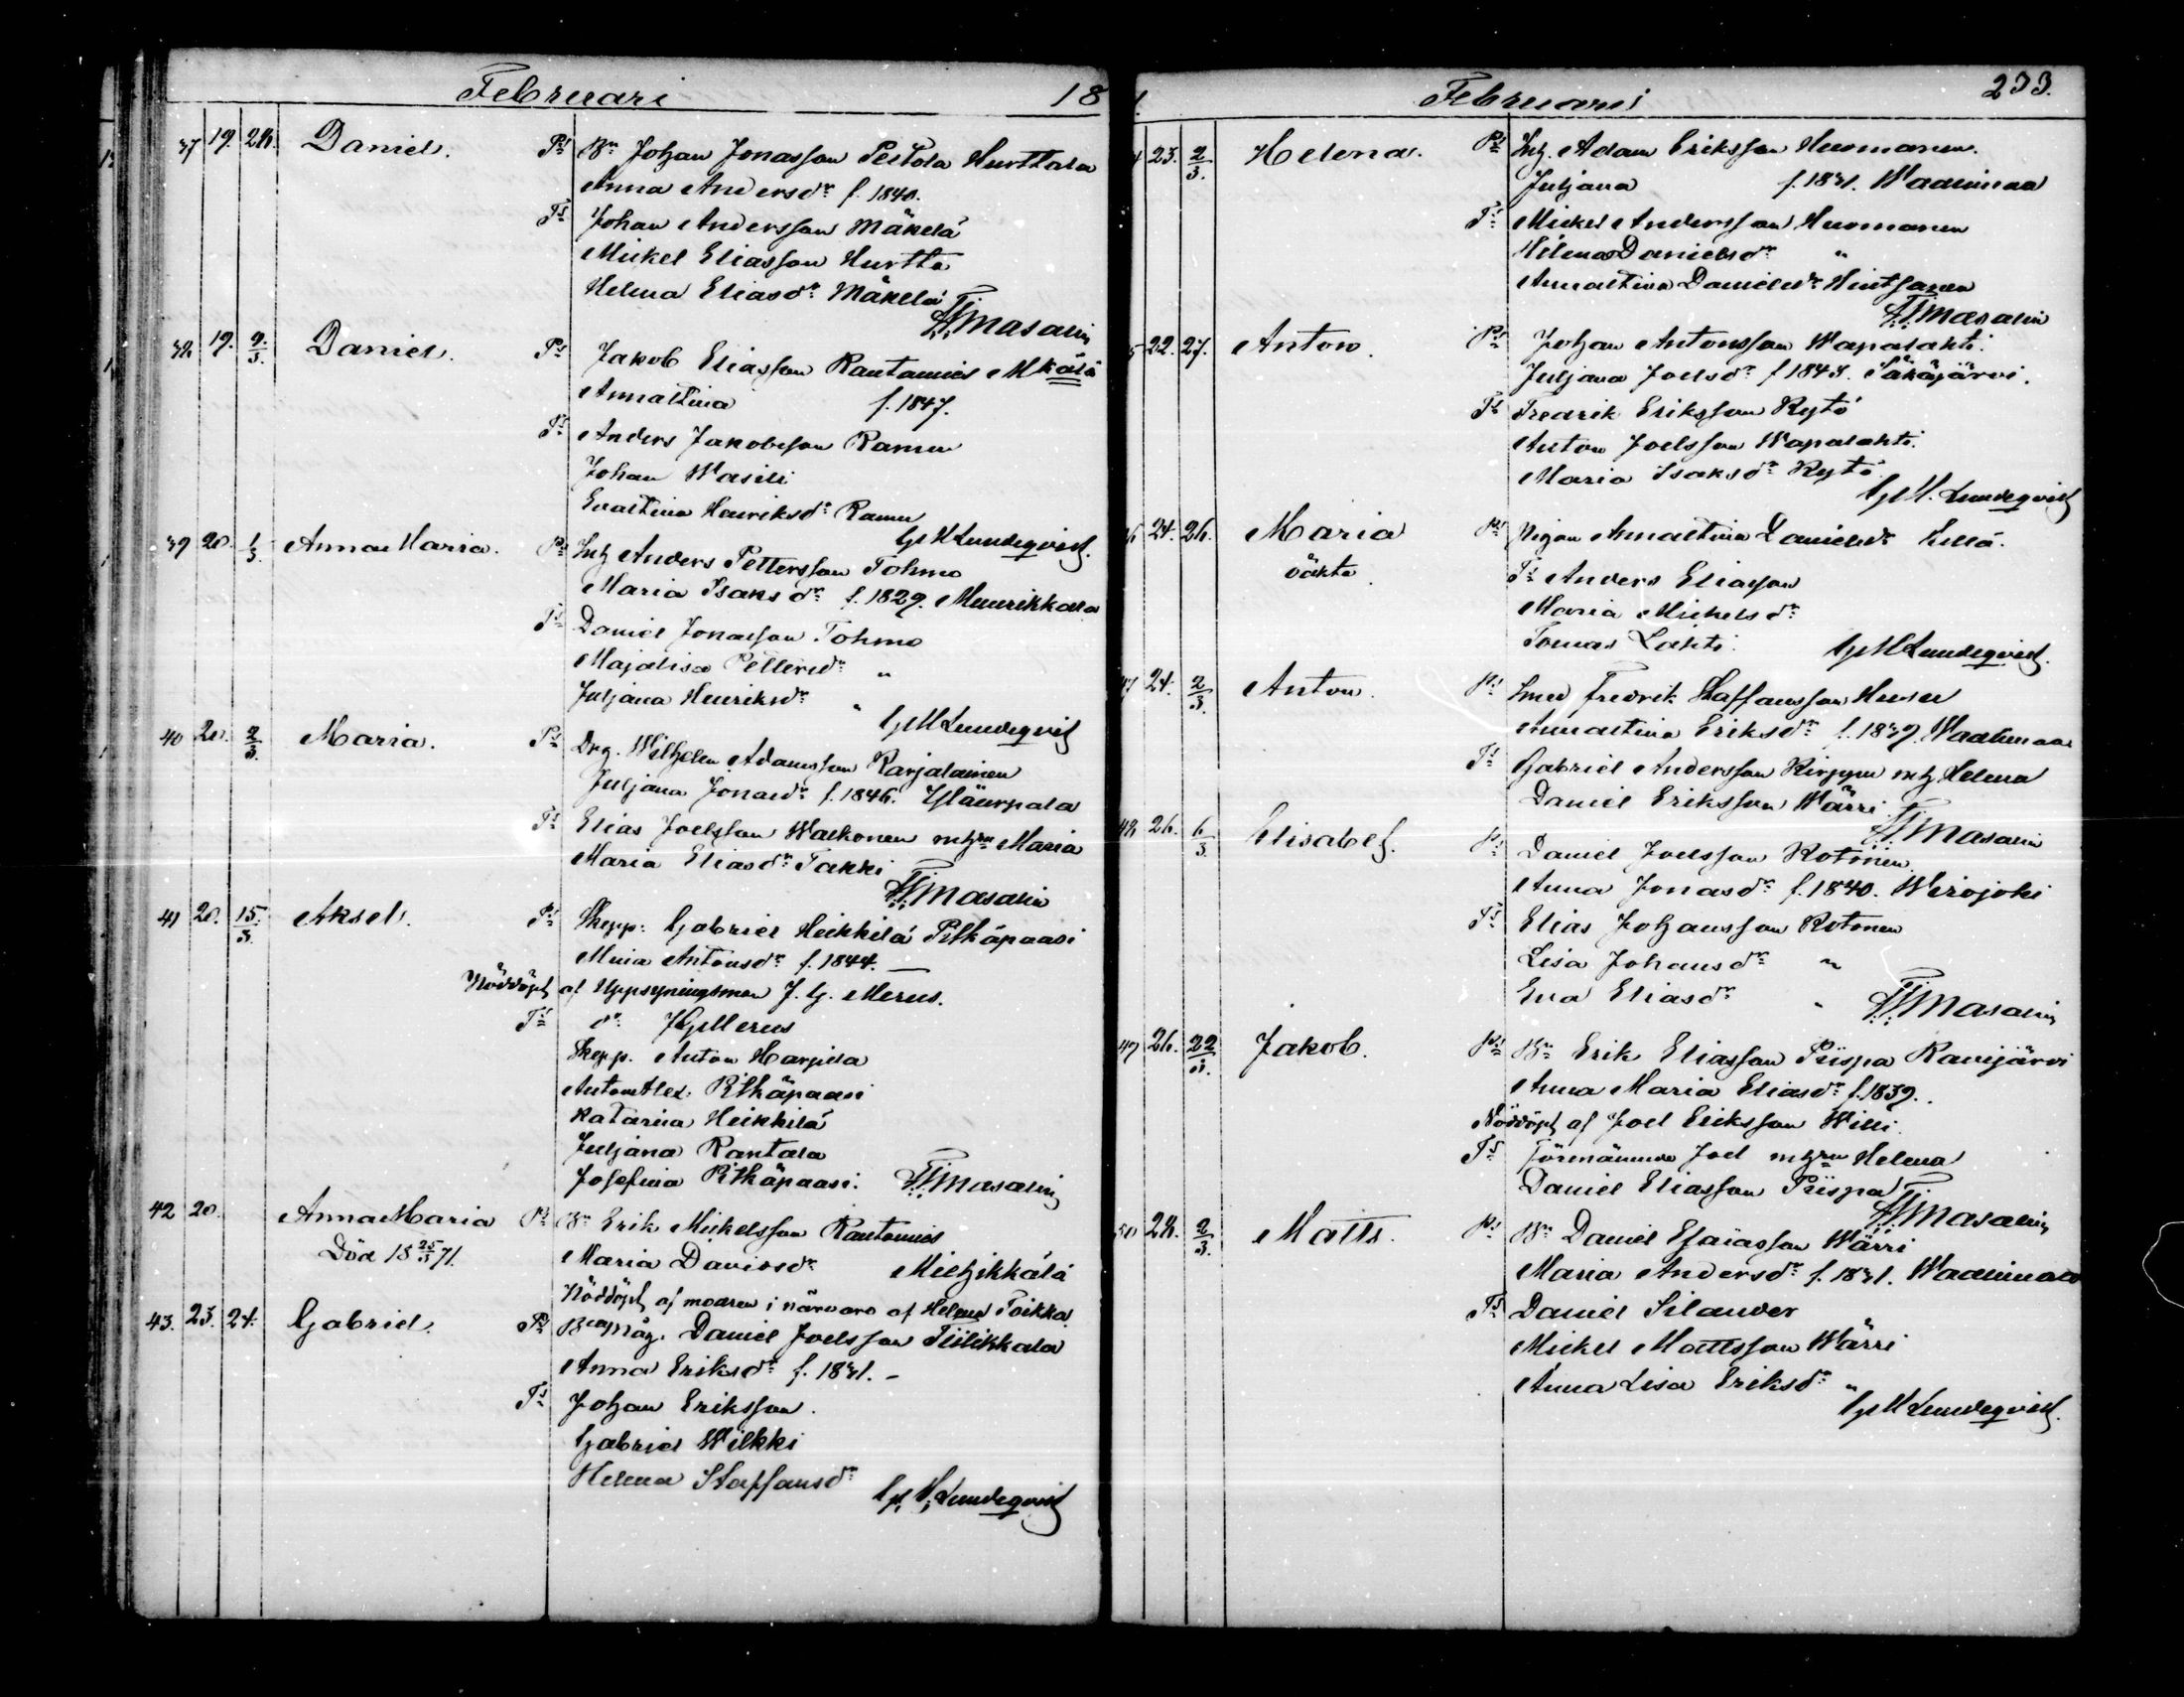 Februari 18
37 19. 28. Daniel. Ps Bn Johan Jonasson Peltola Hurttala
Anna Andersdr f. 1840.
Ts Johan Andersson Mäkelä
Mickel Eliasson Hurtta
Helena Eliasdr Mäkelä
Masalin
38 19. 9/3. Daniel. Ps Jakob Eliasson Rantamies Mkälä
Annastina f. 1847.
Ts Anders Jakobsson Ramu
Johan Wasili
Evastina Henriksdr Ramu
G M Lundeqvist.
39 20. 1/3. Anna Maria. Ps Inh Anders Pettersson Tohmo
Maria Isaksdr f. 1829. Muurikkala
Ts Daniel Jonasson Tohmo
Majalisa Pettersdr "
Juljana Henriksdr "
G M Lundeqvist
40 20. 2/3. Maria. Ps Drg. Wilhelm Adamsson Karjalainen
Juljana Jonasdr f. 1846. Ylläurpala
Ts Elias Joelsson Walkonen mhru Maria
Maria Eliasdr Takki
Masalin
41 20. 15/3. Aksel. Ps Skepp. Gabriel Heikkilä Pitkäpaasi
Mina Antonsdr f. 1844. —
Nöddöpt af Uppsyningsman J. G. Merus.
Ts dr J G Merus
Skepp. Anton Harpila
Anton Alex. Pitkäpaasi
Katarina Heikkilä
Juljana Rantala
Josefina Pitkäpaasi. Masalin
42 20. Anna Maria Ps Bn Erik Mickelsson Rantamies
Död 18 25/3 71. Maria Davidsdr Miehikkälä
Nöddöpt af modren i närvaro af Helena Toikka
43. 23. 24. Gabriel. Ps Bmåg. Daniel Joelsson Tiilikkala
Anna Eriksdr f. 1841. –
Ts Johan Eriksson.
Gabriel Wilkki
Helena Staffansdr
G. M. Lundeqvist
Februari 233.
4 23. 2/3. Helena. Ps Inh. Adam Eriksson Huomanen.
Juljana f. 1841. Waalimaa
Ts Mickel Andersson Huomanen
Helena Danielsdr "
Annastina Danielsdr Hintsanen
Masalin
5 22. 27. Anton. Ps Johan Antonsson Wapalahti.
Juljana Joelsdr f 1843. Säkäjärvi.
Ts Fredrik Eriksson Kytö
Anton Joelsson Wapalahti.
Maria Isaksdr Kytö
G M. Lundeqvist
6 24. 26. Maria Ps Pigan Annastina Danielsdr
oäkta. Ts Anders Eliasson
Maria Mickelsdr
Tomas Lahti. G M Lundeqvist.
47 24. 2/3. Anton. Ps Smed Fredrik Staffansson
Annastina Eriksdr f. 1839. Waalimaa
Ts Gabriel Andersson Kirppu mh Helena
Daniel Eriksson Wärri
Masalin
48 26. 6/3. Elisabeth. Ps Daniel Joelsson Kotonen
Anna Jonasdr f. 1840. Wirojoki
Ts Elias Johansson Kotonen
Lisa Johansdr "
Eva Eliasdr " Masalin
49 26. 22/3. Jakob. Ps Bn Erik Eliasson Piispa Ravijärvi
Anna Maria Eliasdr f. 1839.
Nöddöpt af Joel Eriksson Willi.
Ts Förenämnde Joel mhru Helena
Daniel Eliasson Piispa
Masalin
50 28. 2/3. Matts. Ps Bn Daniel Esaiasson Wärri
Maria Andersdr f. 1841. Waalimaa
Ts Daniel Silander
Mickel Mattsson Wärri
Anna Lisa Eriksdr "
G M Lundeqvist.